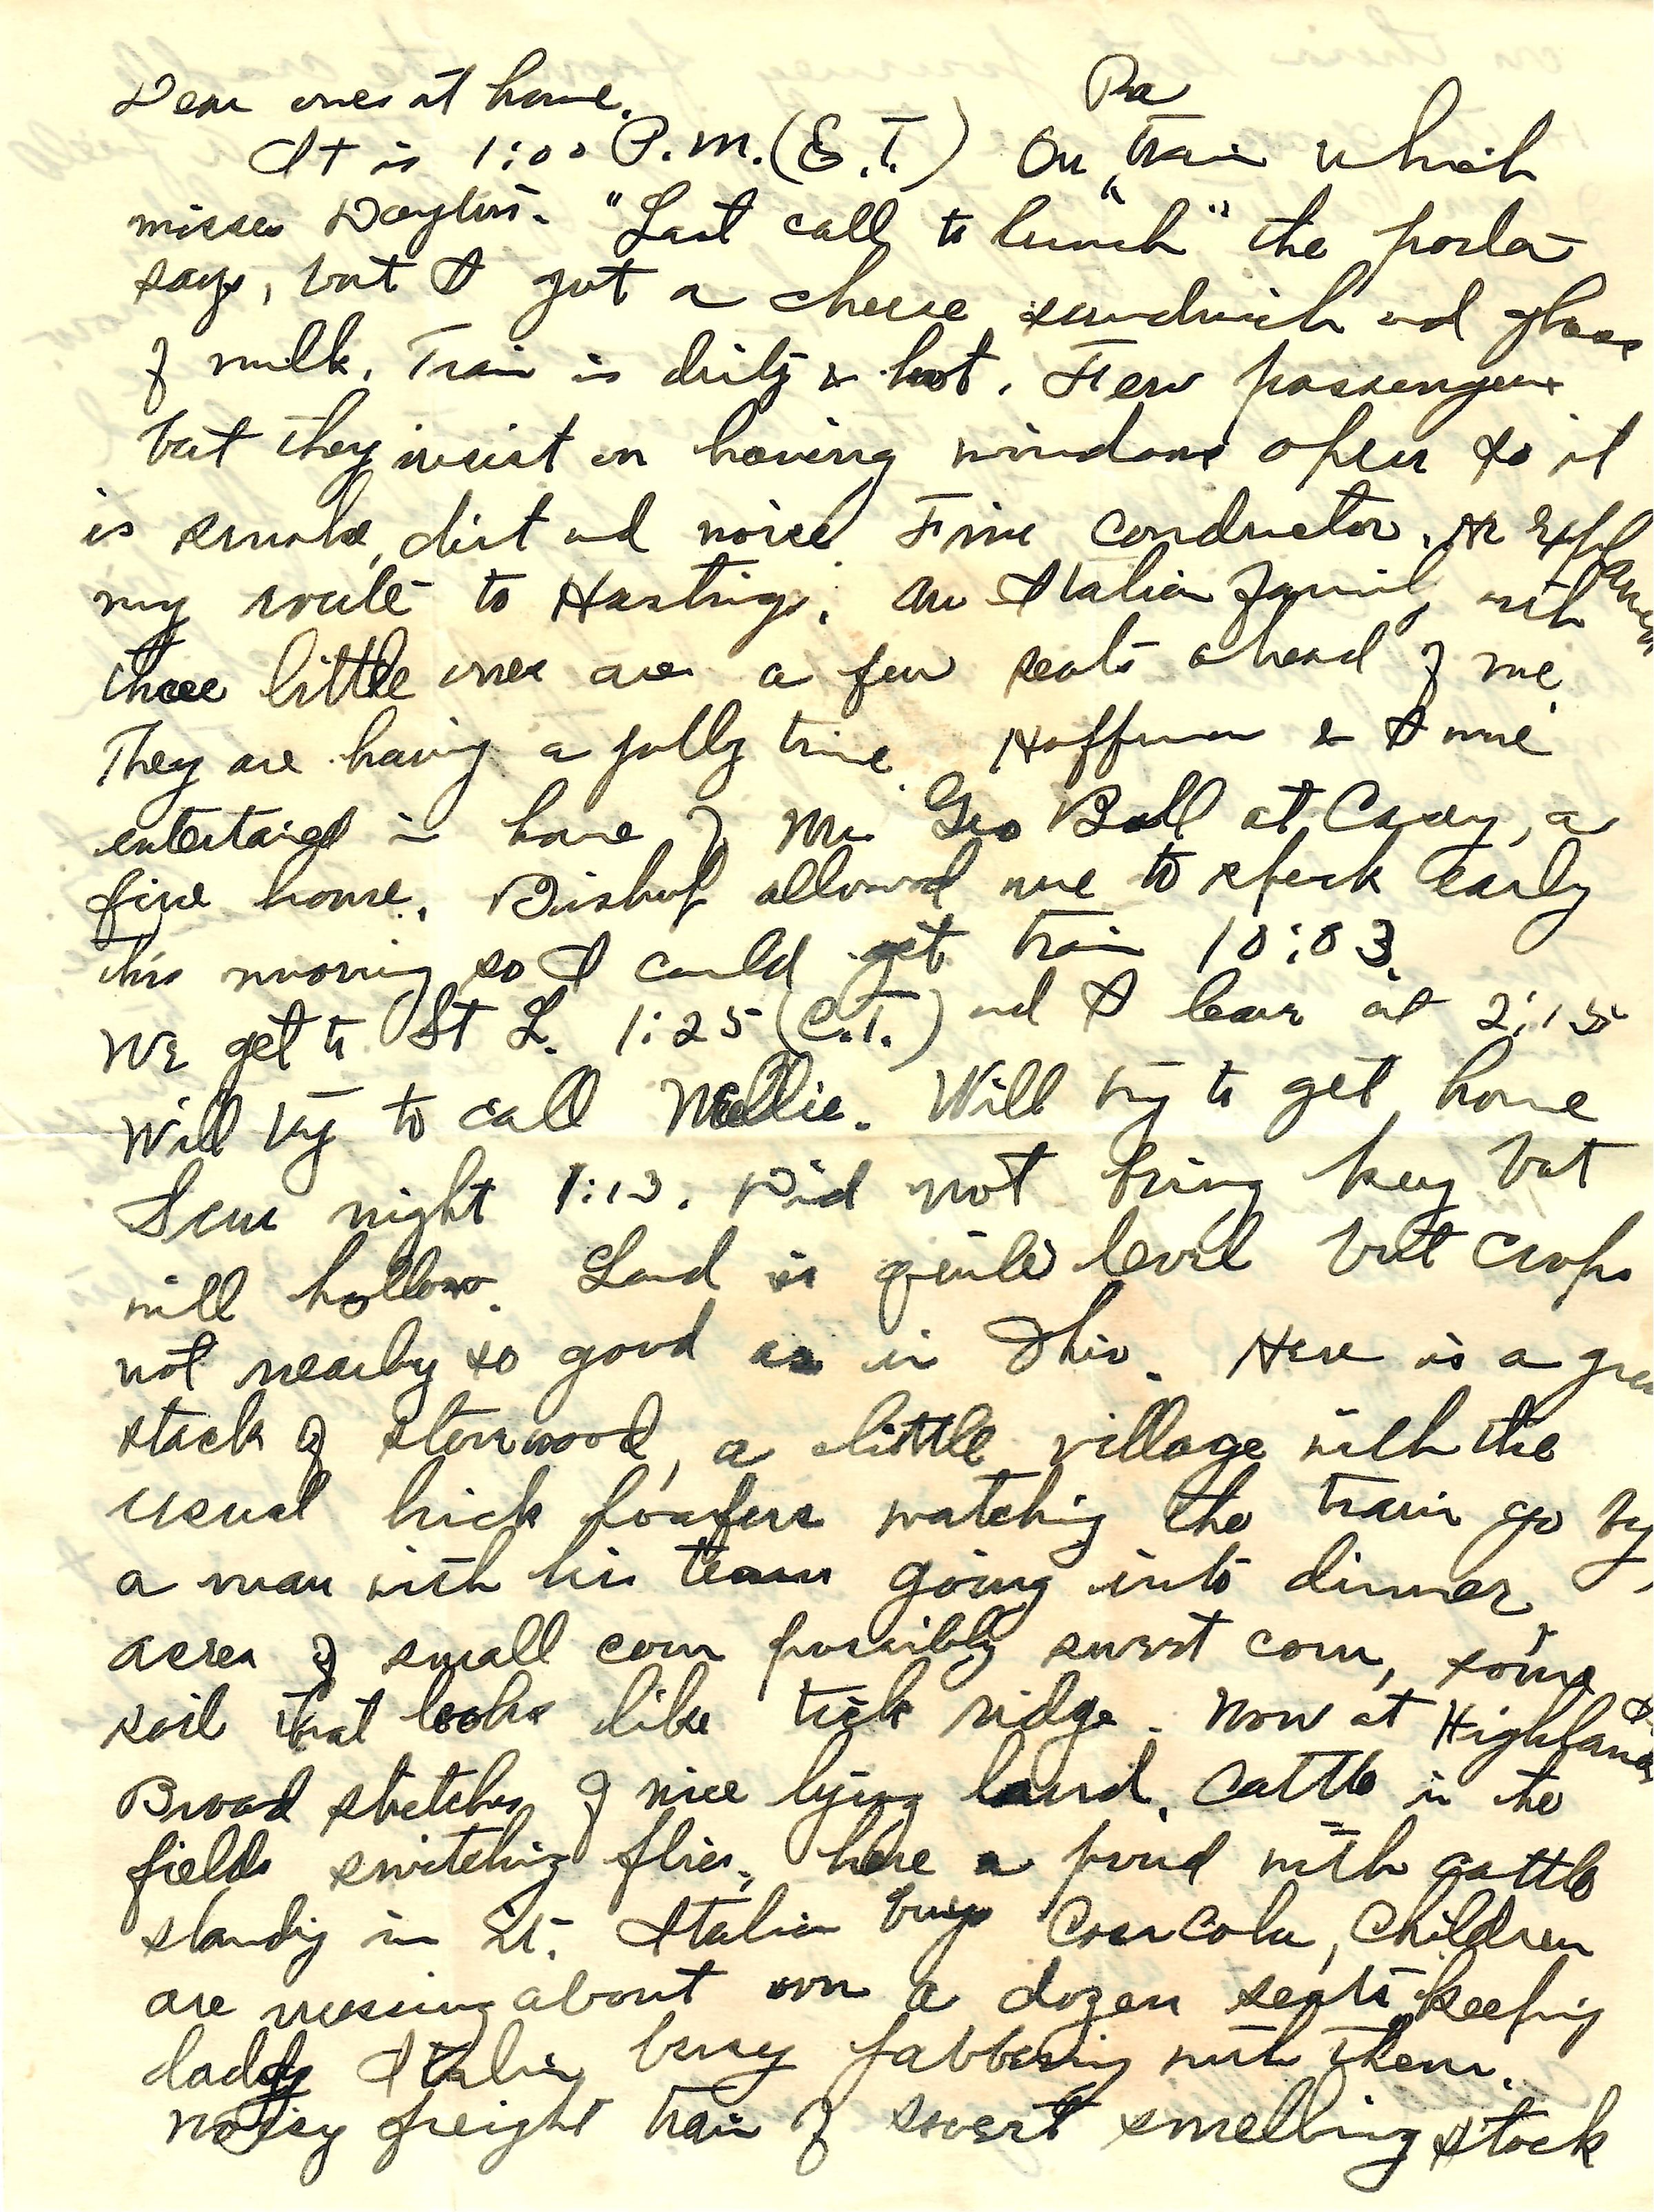 Dear ones at home.
Pa
It is 1:00 P.M. (E.T.) On train which
misses Dayton. "Last call to lunch" the porter
says, but I got a cheese sandwich and glass
of milk. Train is dirty & hot. Few passengers
but they insist on having windows open so it
is smoke, dirt and noise Fine conductor. He explained
my route to Hastings. An Italian family with
three little ones are a few seats ahead of me.
They are having a jolly time. Hoffman & I were
entertained in home of Mr Geo Ball at Casey, a
fine home. Bishop allowed me to speak early
this morning so I could get train 10:03.
We get to St L. 1:25 (C.T.) and I leave at 2:15
Will try to call Nellie. Will try to get home
Sun night 1:13. Did not bring key but
will hollow. Land is quite level but crops
not nearby so good as in Ohio. Here is a
stack of stovewood, a little village with the
usual hick loafers watching the train go by,
a man with his team going into dinner,
acres of small corn possibly sweet corn, some
soil that looks like tick ridge. Now at Highland
Broad stretches of nice lying land. Cattle in the
fields switching flies, here a pond with cattle
standing in it. Italian buys Coca Cola, Children
are messing about over a dozen seats keeping
daddy Italian busy jabbering with them.
Noisy freight train of sweet smelling stock